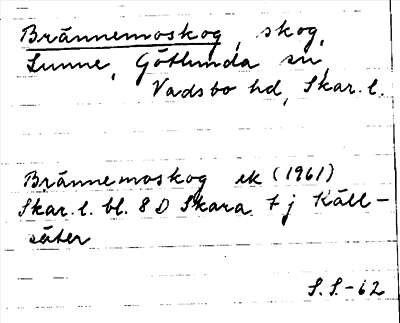 Brännemoskog, skog,
Lunne, Götlunda sn,
Vadsbo hd, Skar. l.
Brännemoskog ek (1961)
Skar. l. bl. 8 D Skara 7 j Käll-
säter
S.S.-62